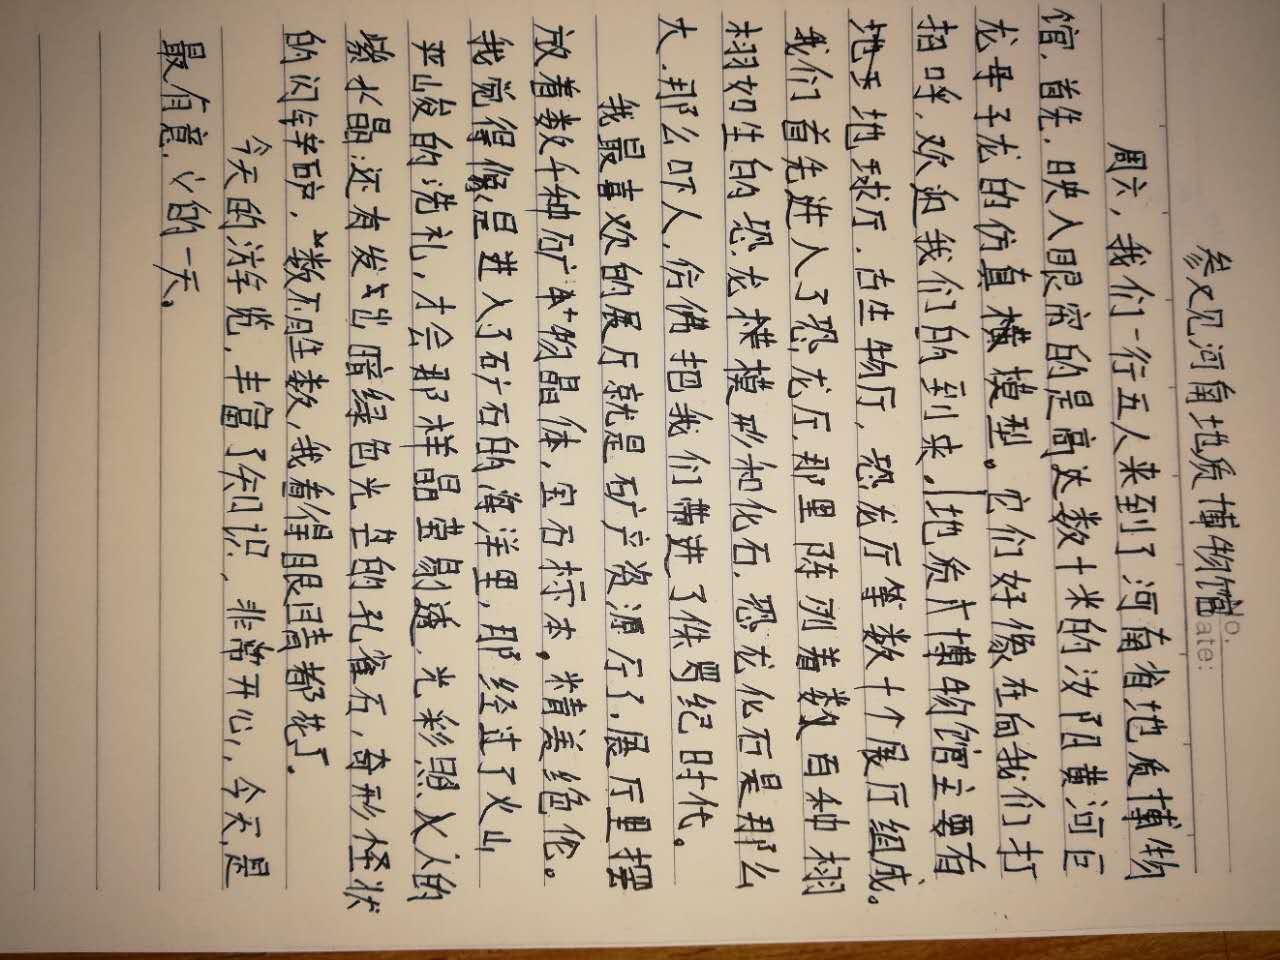 参观河南地质博物馆
No.
Date:
周六，我们一行五人来到了河南省地质博物
馆，首先，映入眼帘的是高达数十米的汝阳黄河巨
龙母子龙的仿真模型。它们好像在向我们打
招呼，欢迎我们的到来，地质博物馆主要有
地球厅，古生物厅，恐龙厅等数十个展厅组成。
我们首先进入了恐龙厅，那里陈列着数百种栩
栩如生的恐龙模形和化石，恐龙化石是那么
大，那么吓人，仿佛把我们带进了侏罗纪时代。
我最喜欢的展厅就是矿产资源厅了，展厅里摆
放着数千种矿物晶体，宝石标本，精美绝伦。
我觉得像是进入了矿石的海洋里，那经过了火山
平山发的洗礼，才会那样晶莹剔透，光彩照人的
紫水晶；还有发出暗绿色光芒的孔雀石，奇形怪状
的闪锌矿，数不胜数，我看得眼睛都花了。
今天的游览，丰富了知识，非常开心，今天是
最有意义的一天。